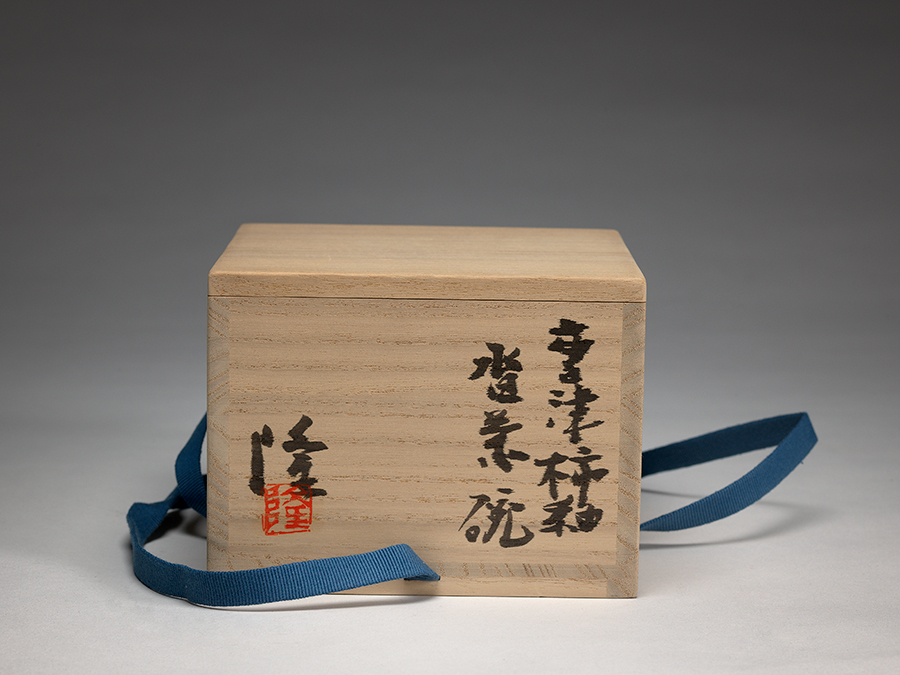 津柿釉
沓茶碗
隆
隆